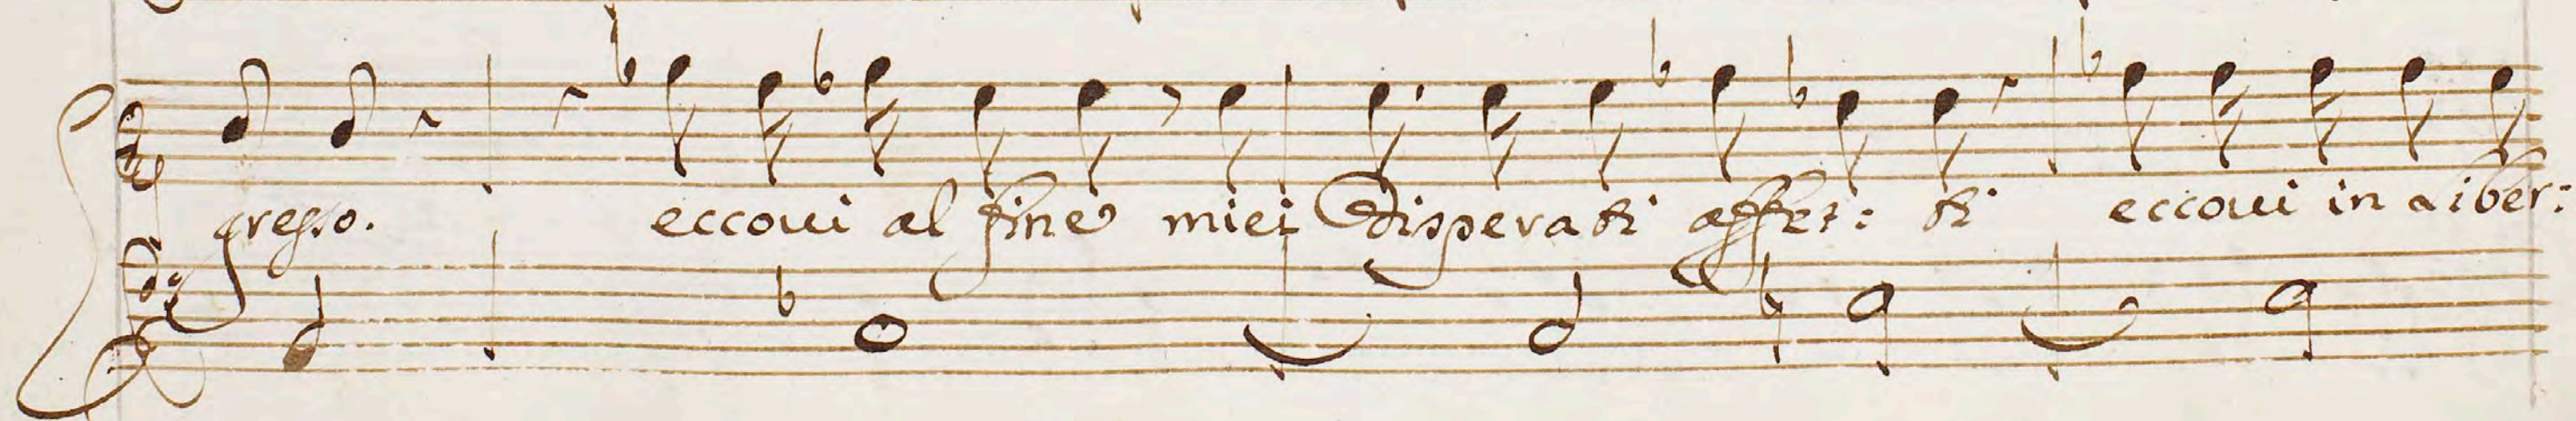 gresso. eccoui al fine miei disperati affet: ti eccoui in liber: